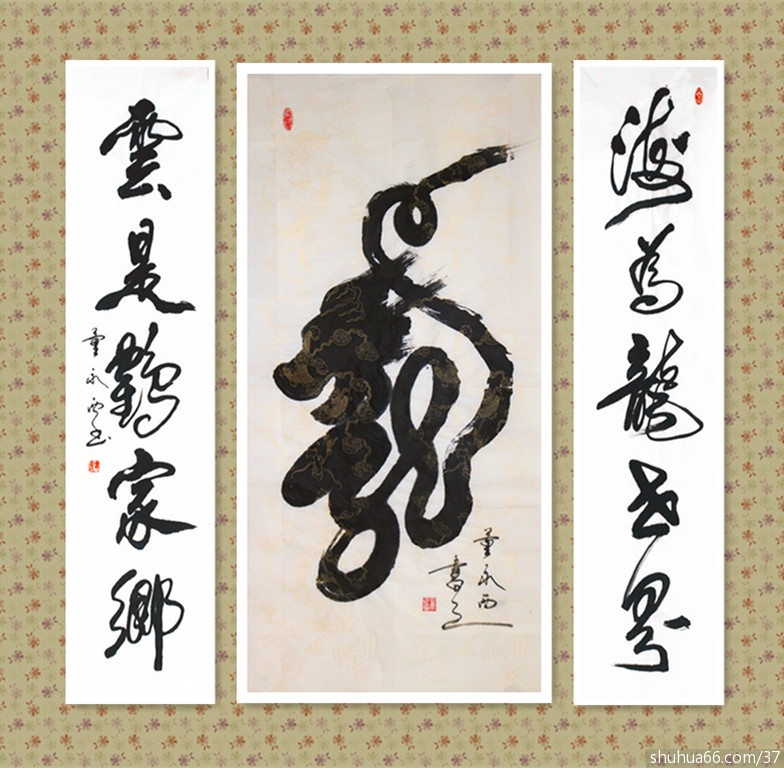 海為龍世界
龍
董永西
書
雲是鶴家鄉
董永西书
shuhua66.com/37